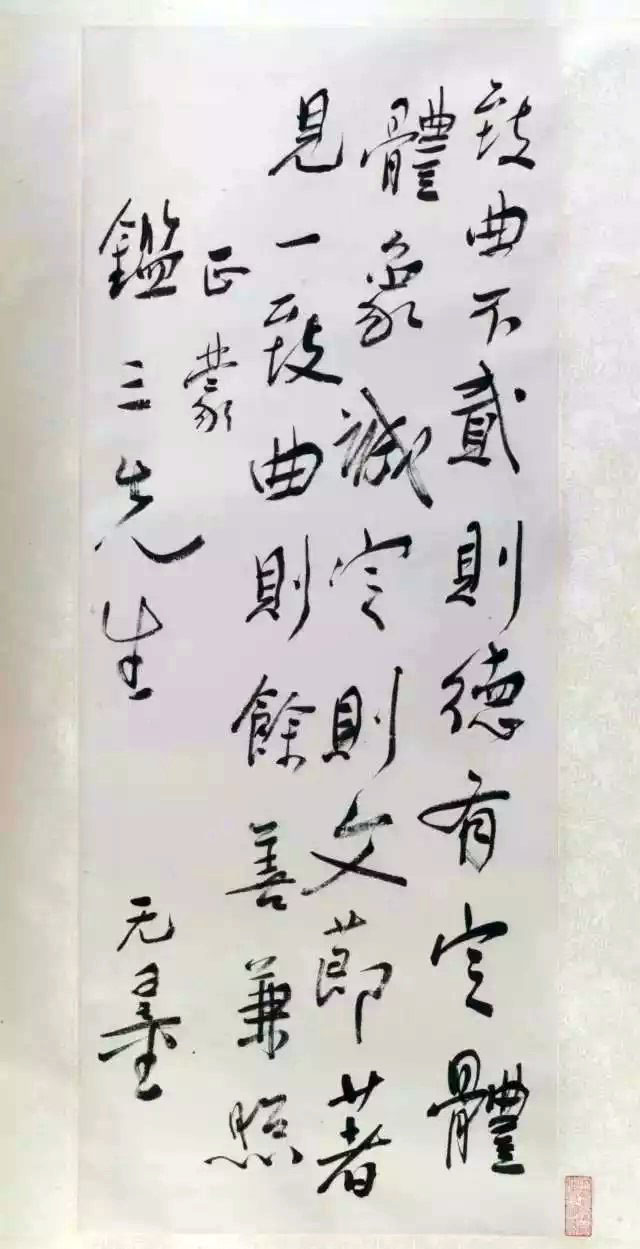 致曲不貳則德有定體
體象誠定則文節著
見一致曲則餘善兼照
正蒙
鑑三先生 无量